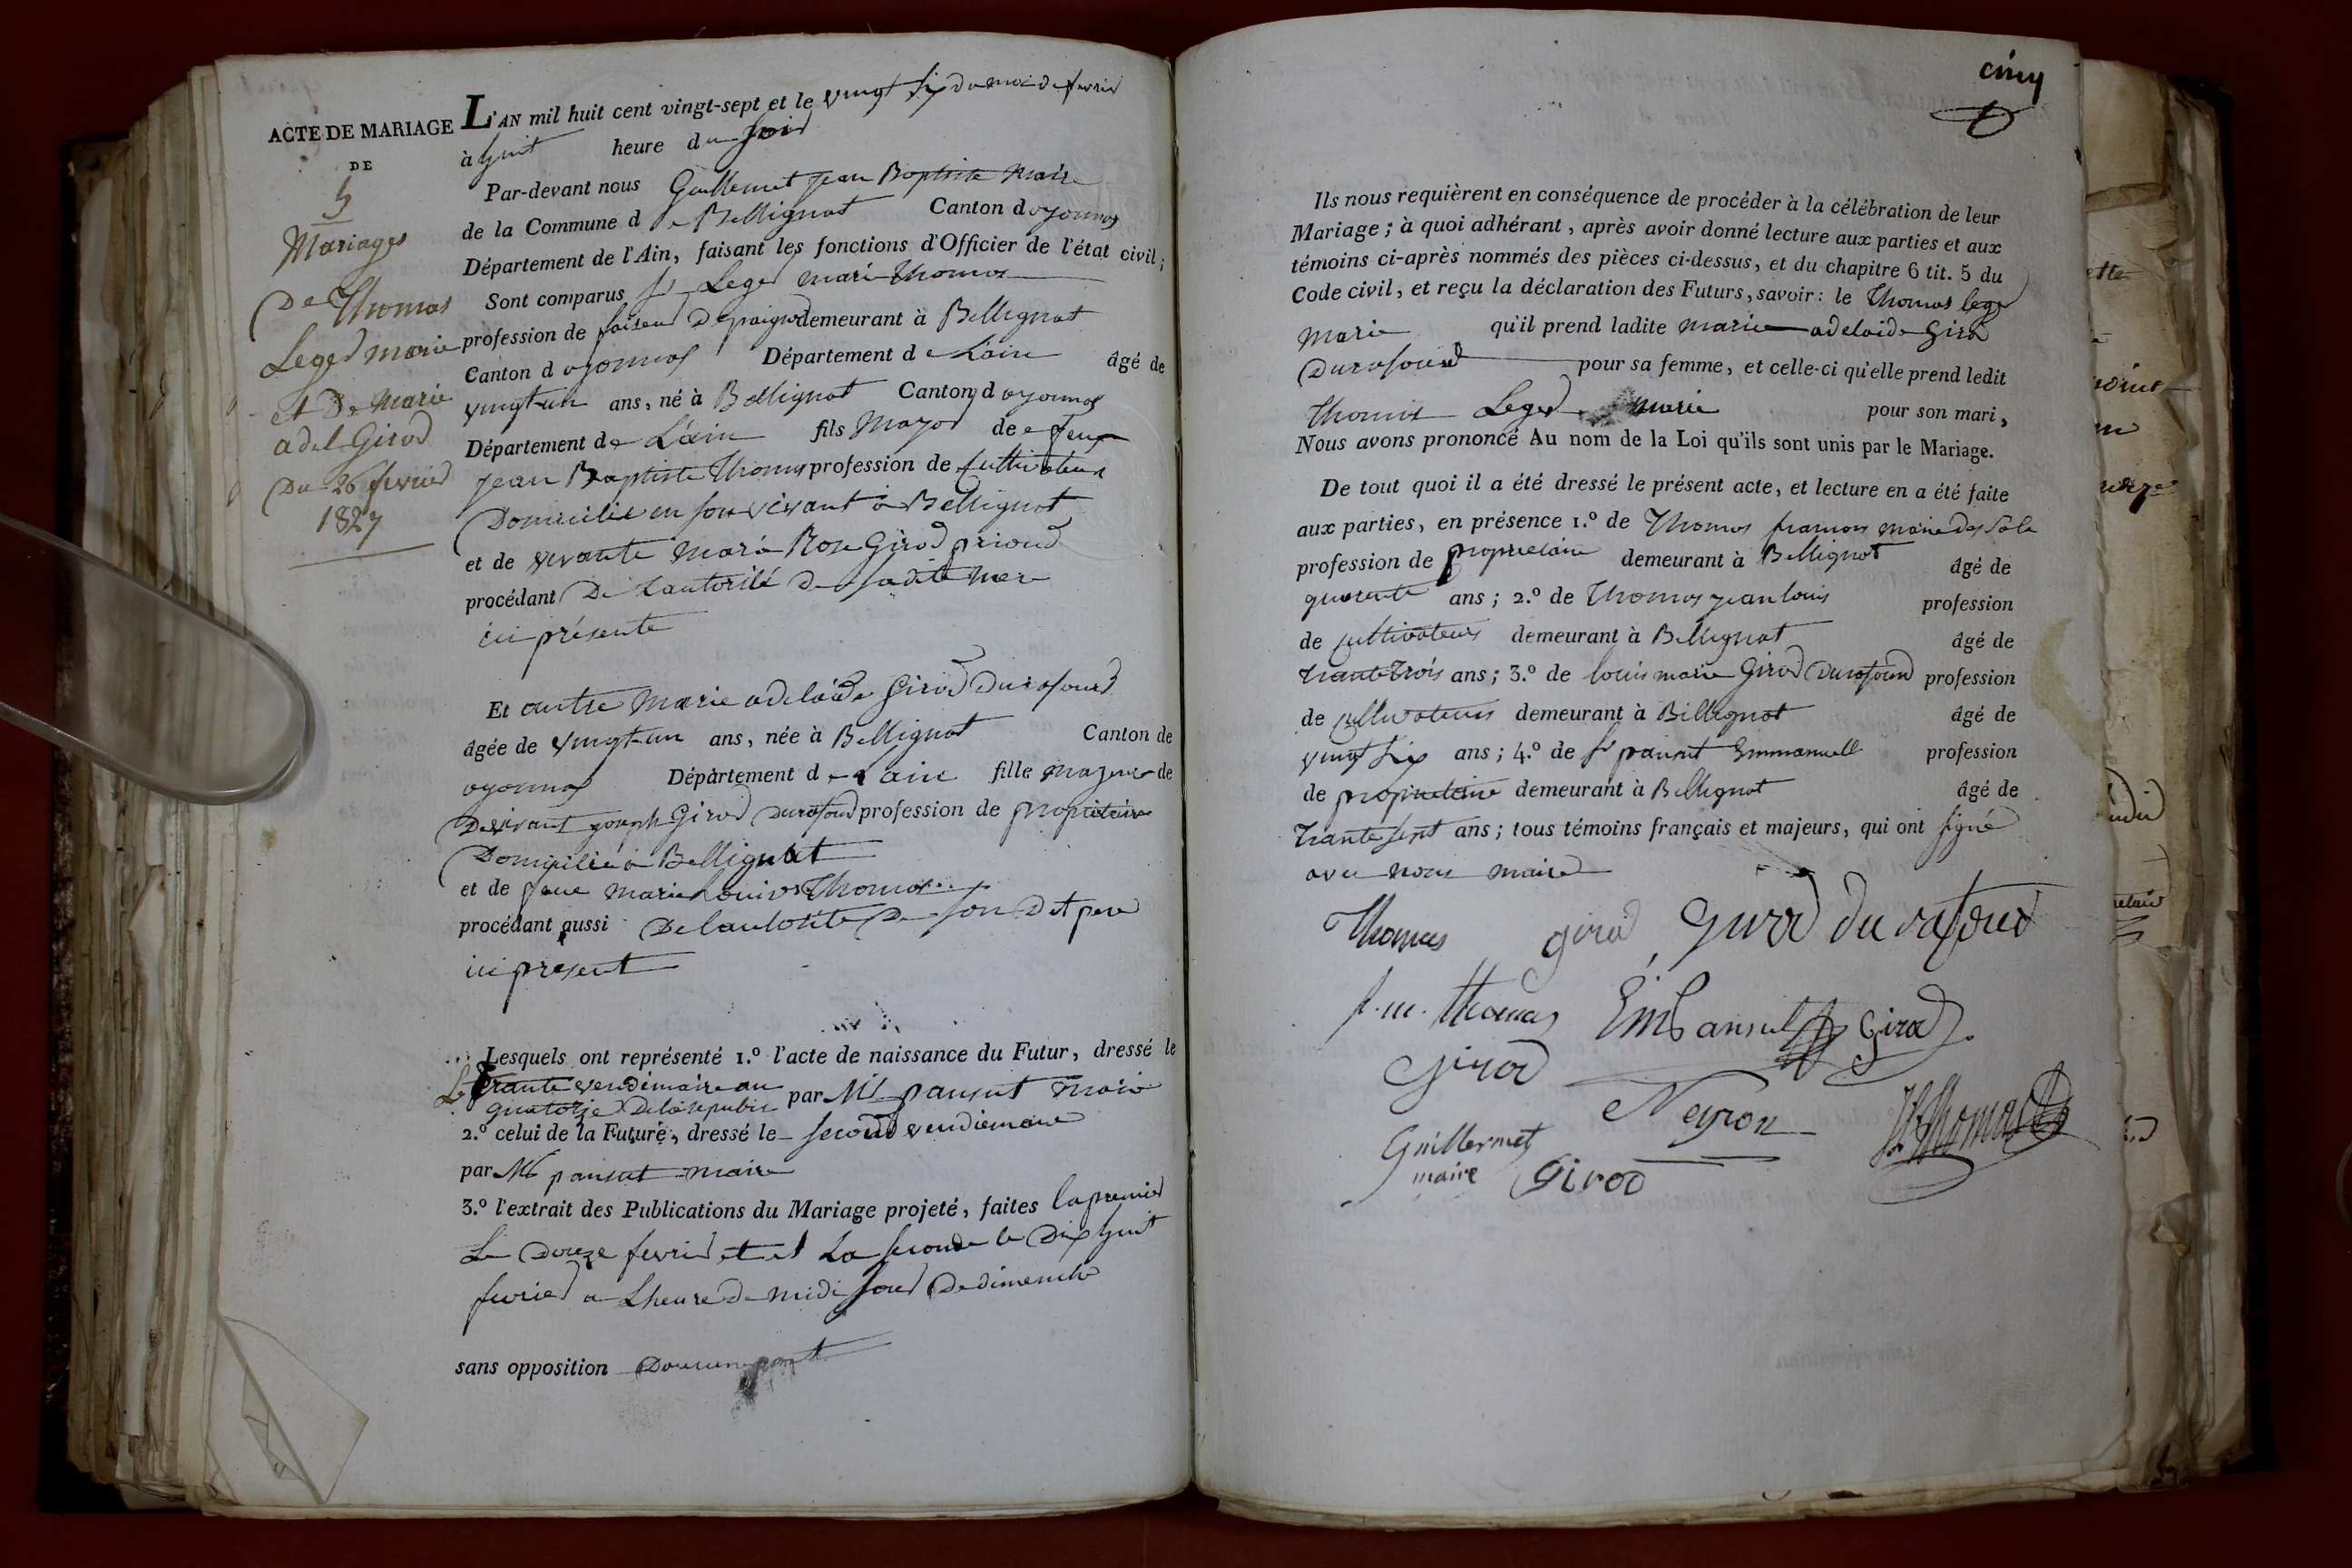 ACTE DE MARIAGE
DE
5
Mariages
De Thomas
Leger marie
et De Marie
adel Girod
Du 26 fevrier
1827
L'AN mil huit cent vingt-sept et le vingt six du moi de fevrier
à huit heure du soir
Par-devant nous Guillermet Jean Baptiste Maire
de la Commune de Bellignat Canton doyonnas
Département de l'Ain, faisant les fonctions d'Officier de l'état civil;
Sont comparus Sr Leger marie Thomas
profession de faiseur de paigne demeurant à Bellignat
Canton doyonnas Département de Lain âgé de
vingt-un ans, né à Bellignat Canton doyonnas
Département de Lain fils Major de feux
Jean Baptiste Thomas profession de cultivateur
Domicilié en son vivant à Bellignat
et de vivante Marie Rose Girod prioud
procédant De Lautorité de sadite Mere
ici présente
Et autre Marie adelaide Girod Durafourd
âgée de vingt-un ans, née à Bellignat Canton de
oyonnas Département de Lain fille majeure de
De vivant joseph Girod Durafourd profession de propriétaire
Domicilié à Bellignat
et de feue marie Louise Thomas
procédant aussi De lautorité De son dit pere
ici présent
Lesquels ont représenté 1.º l'acte de naissance du Futur, dressé le
Le trante vendimaire an
quatorze De la republic par Mr pansut maire
2.º celui de la Future, dressé le second vendiemaire
par Mr pansut maire
3.º l'extrait des Publications du Mariage projeté, faites la premier
Le Douze fevrier et et La seconde le Dix huit
fevrier a Lheure de midi jour De dimenche
sans opposition
cinq
Ils nous requièrent en conséquence de procéder à la célébration de leur
Mariage; à quoi adhérant, après avoir donné lecture aux parties et aux
témoins ci-après nommés des pièces ci-dessus, et du chapitre 6 tit. 5 du
Code civil, et reçu la déclaration des Futurs, savoir: le Thomas leger
Marie qu'il prend ladite marie adelaide Giro
Durafourd pour sa femme, et celle-ci qu'elle prend ledit
Thomas Leger marie pour son mari,
Nous avons prononcé Au nom de la Loi qu'ils sont unis par le Mariage.
De tout quoi il a été dressé le présent acte, et lecture en a été faite
aux parties, en présence 1.º de Thomas francois marie
profession de propriétaire demeurant à Bellignat âgé de
quarente ans; 2.º de Thomas jean louis profession
de cultivateur demeurant à Bellignat âgé de
trante trois ans; 3.º de louis marie Girod Durafourd profession
de cultivateur demeurant à Bellignat âgé de
vingt six ans; 4.º de Sr pansut Emmanuell profession
de propriétaire demeurant à Bellignat âgé de
trante sept ans; tous témoins français et majeurs, qui ont signé
avec nous maire
Thomas girod Girod durafour
f. m. thomas Em Pansut Girod
Girod
Neyron J L Thomas
Guillermet
maire Girod